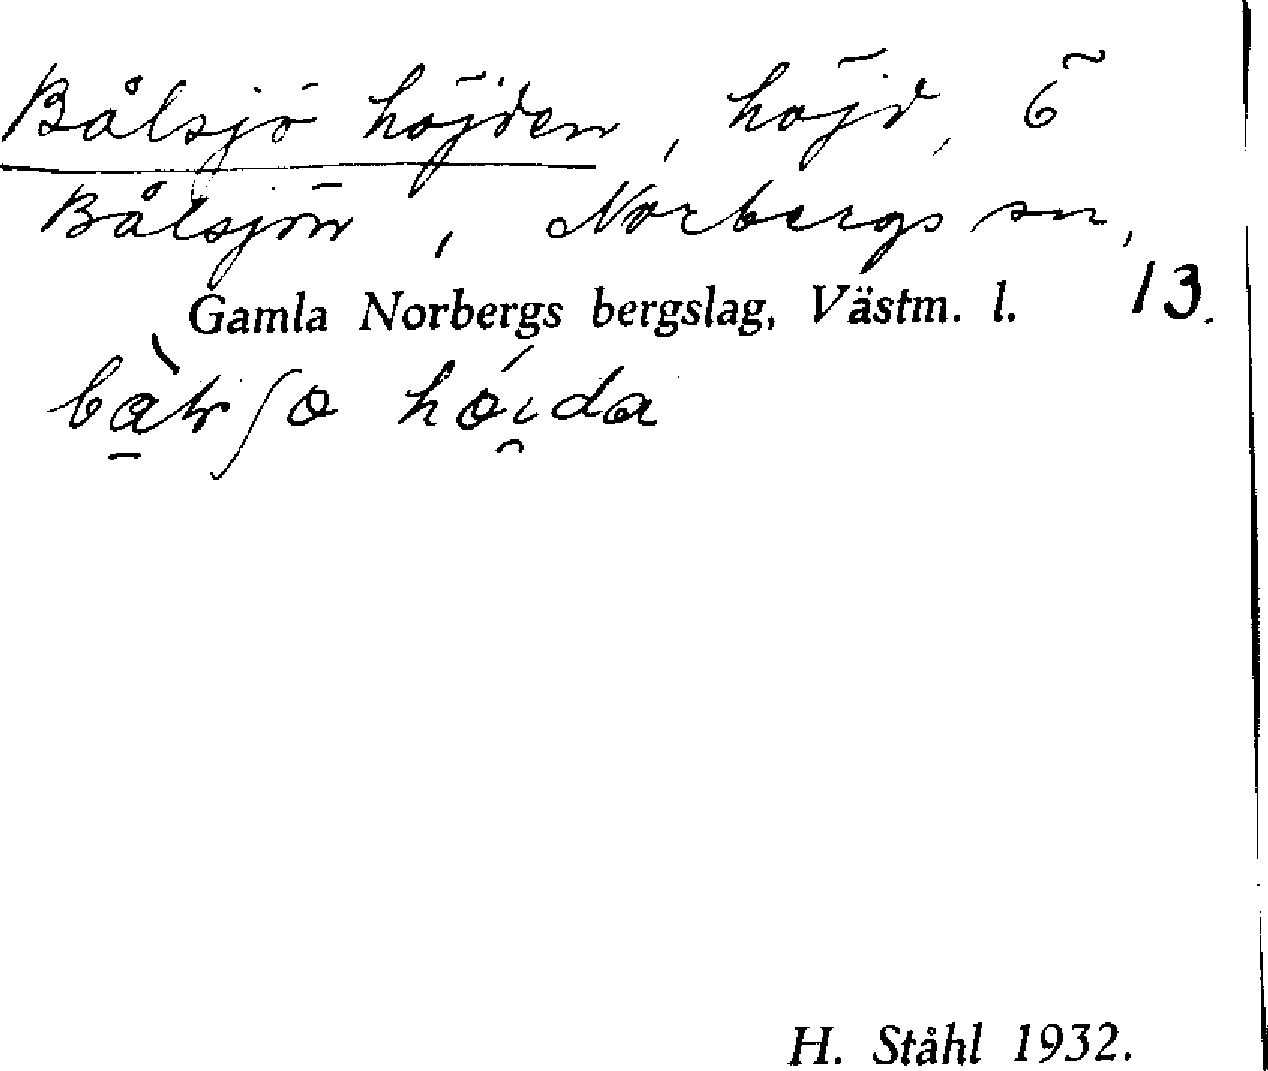 Bålsjö höjden, höjd, ö
Bålsjön, Norbergs sn,
Gamla Norbergs bergslag, Västm. l. 13.
H. Ståhl 1932.